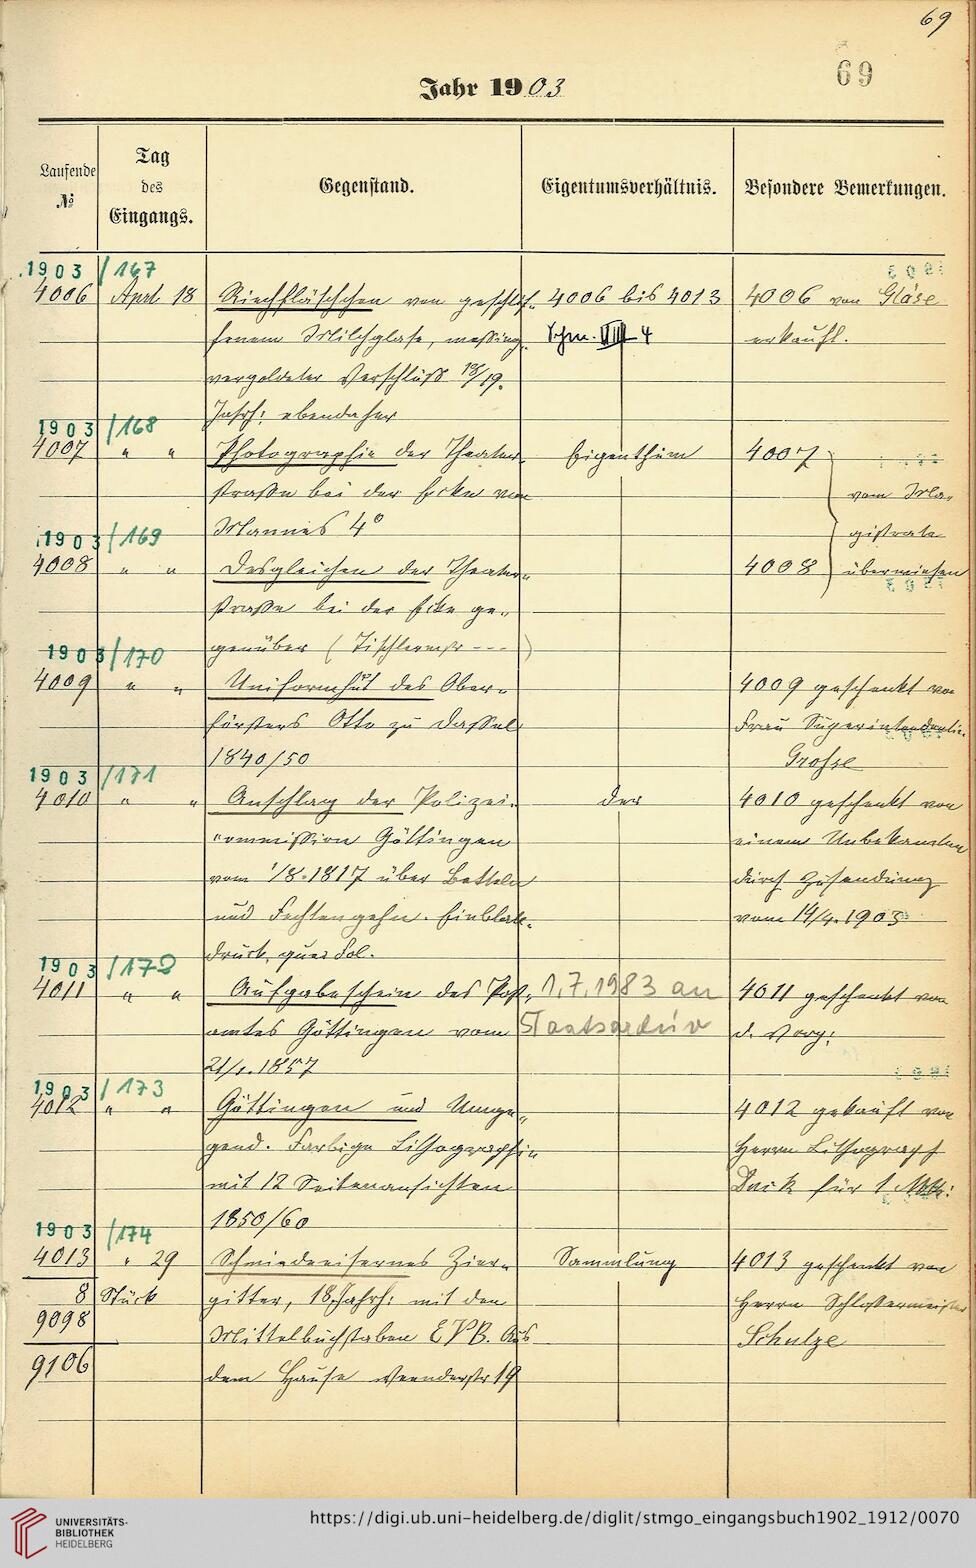 69
69
Jahr 1903
Laufende
№
Tag
des
Eingangs.
Gegenstand.
Eigentumsverhältnis.
Besondere Bemerkungen.
1903 / 167
4006 April 18 Riechfläschchen von geschlif- 4006 bis 4013 4006 von Gläse
fenem Milchglase, messing- 4 erkauft.
vergoldeter Verschluß 18/19.
Jahrh: ebendaher
1903 / 168
4007 " " Photographie der Theater- Eigenthum 4007
straße bei der Ecke von vom Ma-
Mannes 4° gistrate
1903 / 169
4008 " " Desgleichen der Theater- 4008 überwiesen
straße bei der Ecke ge-
genüber (Tischlermstr - - - )
1903 / 170
4009 " " Uniformhut des Ober- 4009 geschenkt von
försters Otto zu Dassel Frau Superintendentin
1840/50 Grosse
1903 / 171
4010 " " Anschlag der Polizei- der 4010 geschenkt von
commission Göttingen einem Unbekannten
vom 1/8. 1817 über Betteln durch Zusendung
und Fechtengehn. Einblatt- vom 14/4. 1903
druck, quer Fol.
1903 / 172
4011 " " Aufgabeschein des Post- 1.7.1983 an 4011 geschenkt von
amtes Göttingen vom Staatsarchiv d. Vorg:
21/1. 1857
1903 / 173
4012 " " Göttingen und Umge- 4012 gekauft von
gend. Farbige Lithographie Herrn Lithograph
mit 12 Seitenansichten für 1 Mk:
1850/60
1903 / 174
4013 " 29 Schmiedeeisernes Zier- Sammlung 4013 geschenkt von
8 Stück gitter, 18. Jahrh: mit den Herrn Schlossermeister
9098 Mittelbuchstaben E.V.B. Aus Schulze
9106 dem Hause Weenderstr 19
UNIVERSITÄTS-
BIBLIOTHEK
HEIDELBERG
https://digi.ub.uni-heidelberg.de/diglit/stmgo_eingangsbuch1902_1912/0070